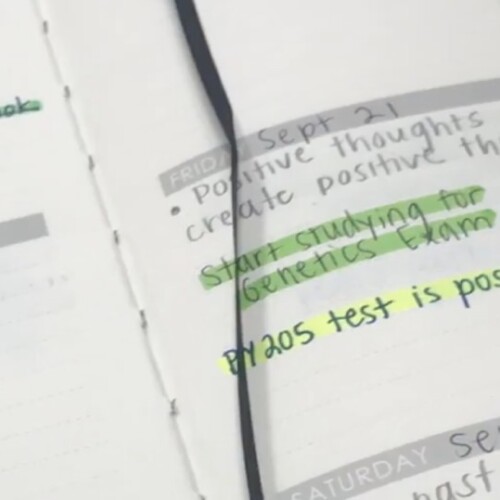 ok
FRIDAY Sept 21
• Positive thoughts
create positive th
Start studying for
Genetics Exam
PY205 test is pos
SATURDAY Se
past